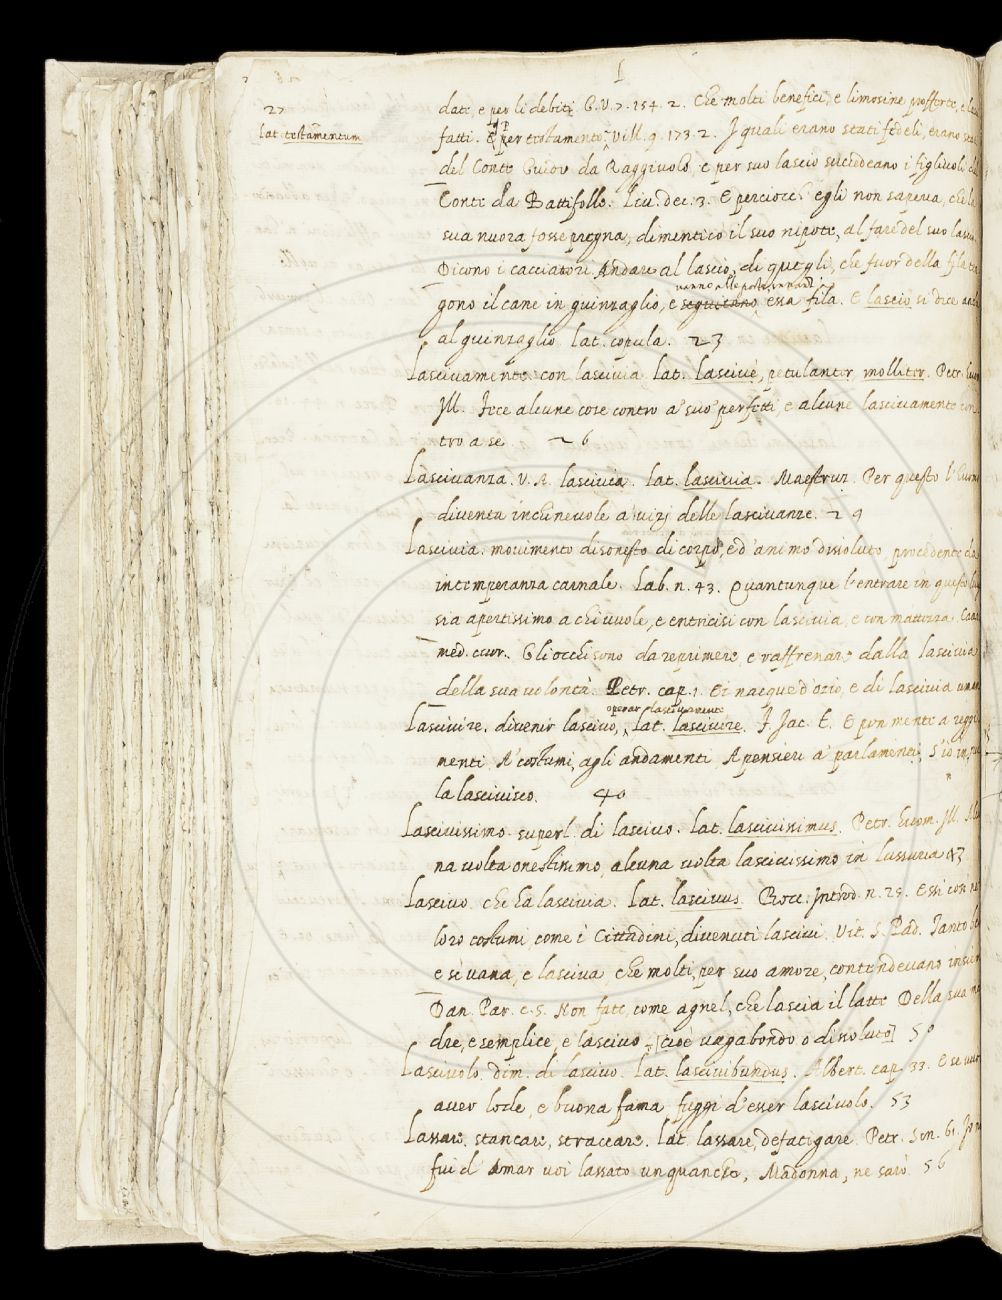 L
27
lat. testamentum
dati e per li debiti G.V. 7. 154. 2. Che molti benefici, e limosine profferte, e
fatti. E per testamento. Vill. 9. 173. 2. I quali erano stati fedeli, erano
del Conte Guido da Raggiuolo, e per suo lascio succedeano i figliuoli
Conte da Battifolle. Liv. dec. 3. E perciocch' egli non sapeva, che la
sua nuora fosse pregna, dimenticò il suo nipote, al fare del suo
Dicono i cacciatori. Andare al lascio, di quegli, che fuor della fila
vanno alle poste innanzi a
gono il cane in guinzaglio, e seguitano essa fila. E lascio si dice
al guinzaglio lat. copula. 23
Lascivamente. con lascivia lat. lascivè, petulanter, molliter. Petr.
Ill. Fece alcune cose contro a' suo' perfetti, e alcune lascivamente con
tro a se 26
Lascivanza. V. A. lascivia. lat. lascivia. Maestruz. Per questo l'
diventa inchinevole a' vizj delle lascivanze. 29
Lascivia. movimento disonesto di corpo, e d'animo dissoluto, procedente da
intemperanza carnale. Lab. n. 43. Quantunque l'entrare in questo
sia apertissimo a chi vuole, e entricisi con lascivia, e con mattezza.
med. cuor. Gli occhi sono da reprimere, e raffrenare dalla lascivia
della sua volontà. Petr. cap. 1. Ei nacque d'ozio, e di lascivia
operar lascivamente
Lascivire. divenir lascivo, lat. lascivire. F. Jac. T. E pon mente a
menti A' costumi, agli andamenti A pensieri a' parlamenti, S'io in
la lascivisco. 40
Lascivissimo. superl. di lascivo. lat. lascivissimus. Petr. huom. Ill.
na volta onestissimo, alcuna volta lascivissimo in lussuria 43
Lascivo. che ha lascivia. lat. lascivus. Bocc. Introd. n. 25. Essi così
loro costumi, come i Cittadini, divenuti lascivi. Vit. S. Pad. Tanto
e sì vana, e lasciva, che molti, per suo amore, contendevano
Dan. Par. c. 5. Non fate, come agnel, che lascia il latte Della sua
dre, e semplice, e lascivo [cioè vagabondo o dissoluto] 50
Lascivolo. dim. di lascivo. lat. lascivibundus. Albert. cap. 33. E se
aver lode, e buona fama fuggi d'esser lascivolo. 53
Lassare. stancare, straccare. lat. lassare, defatigare. Petr. Son. 61.
fui d' Amar voi lassato unquanche, Madonna, ne sarò 56